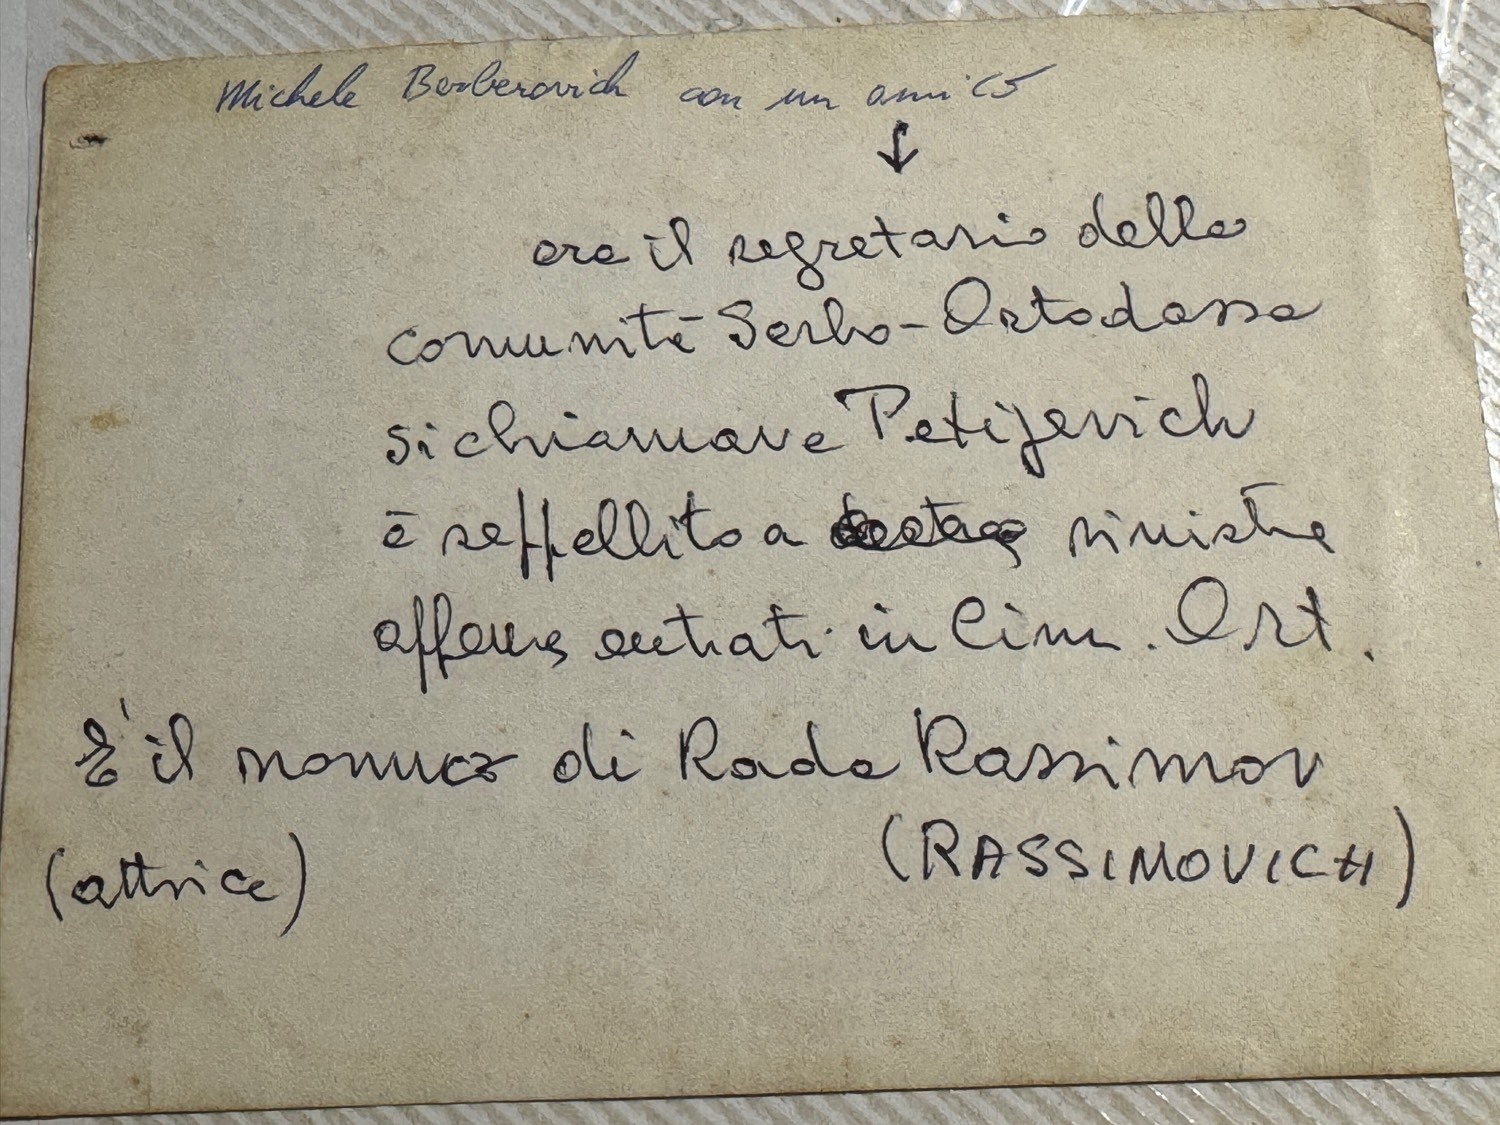 Michele Berberovich con un amico
↓
era il segretario della
comunità Serbo-Ortodossa
si chiamava Petijevich
è seppellito a sinistra
appena entrati in Cim. Ort.
E' il nonno di Rada Rassimov
(attrice) (RASSIMOVICH)